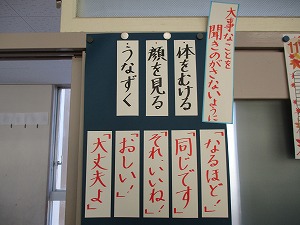 大事なことを
聞きのがさないように
・体をむける
・顔を見る
・うなずく
「なるほど!」
「同じです」
「それ、いいね!」
「おしい!」
「大丈夫よ」